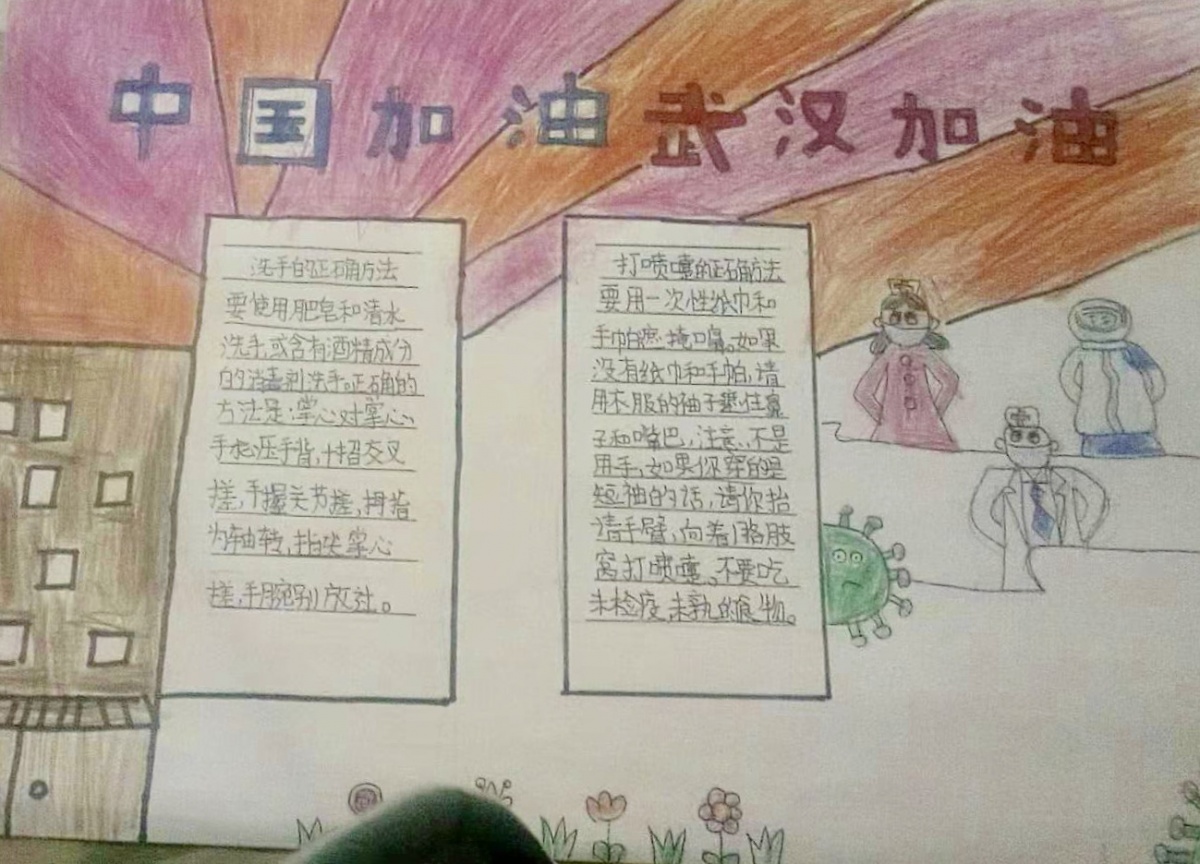 中国加油武汉加油
洗手的正确方法
要使用肥皂和清水
洗手,或含有酒精成分
的消毒剂洗手。正确的
方法是:掌心对掌心、
手心压手背,十指交叉
搓,手握关节搓,拇指
为轴转,指尖掌心
搓,手腕别放过。
打喷嚏的正确方法
要用一次性纸巾和
手帕 掩口鼻。如果
没有纸巾和手帕,请
用衣服的袖子 住鼻
子和嘴巴,注意,不是
用手,如果你穿的是
短袖的话,请你抬
请手臂,向着胳肢
窝打喷嚏。不要吃
未检疫,未熟的食物。